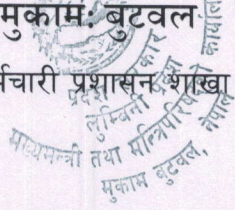 मुकाम: बुटवल
र्मचारी प्रशासन शाखा
प्रदेश सरकार
लुम्बिनी प्रदेश
मुख्यमन्त्री तथा मन्त्रिपरिषद्को कार्यालय
मुकाम बुटवल, नेपाल